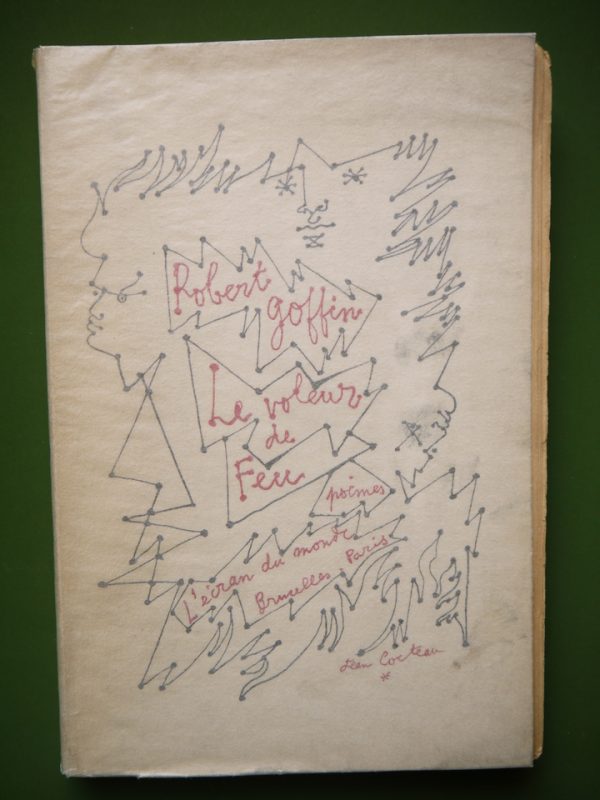 Robert
Goffin
Le voleur
de
Feu
poèmes
L'écran du monde
Bruxelles Paris
Jean Cocteau
*